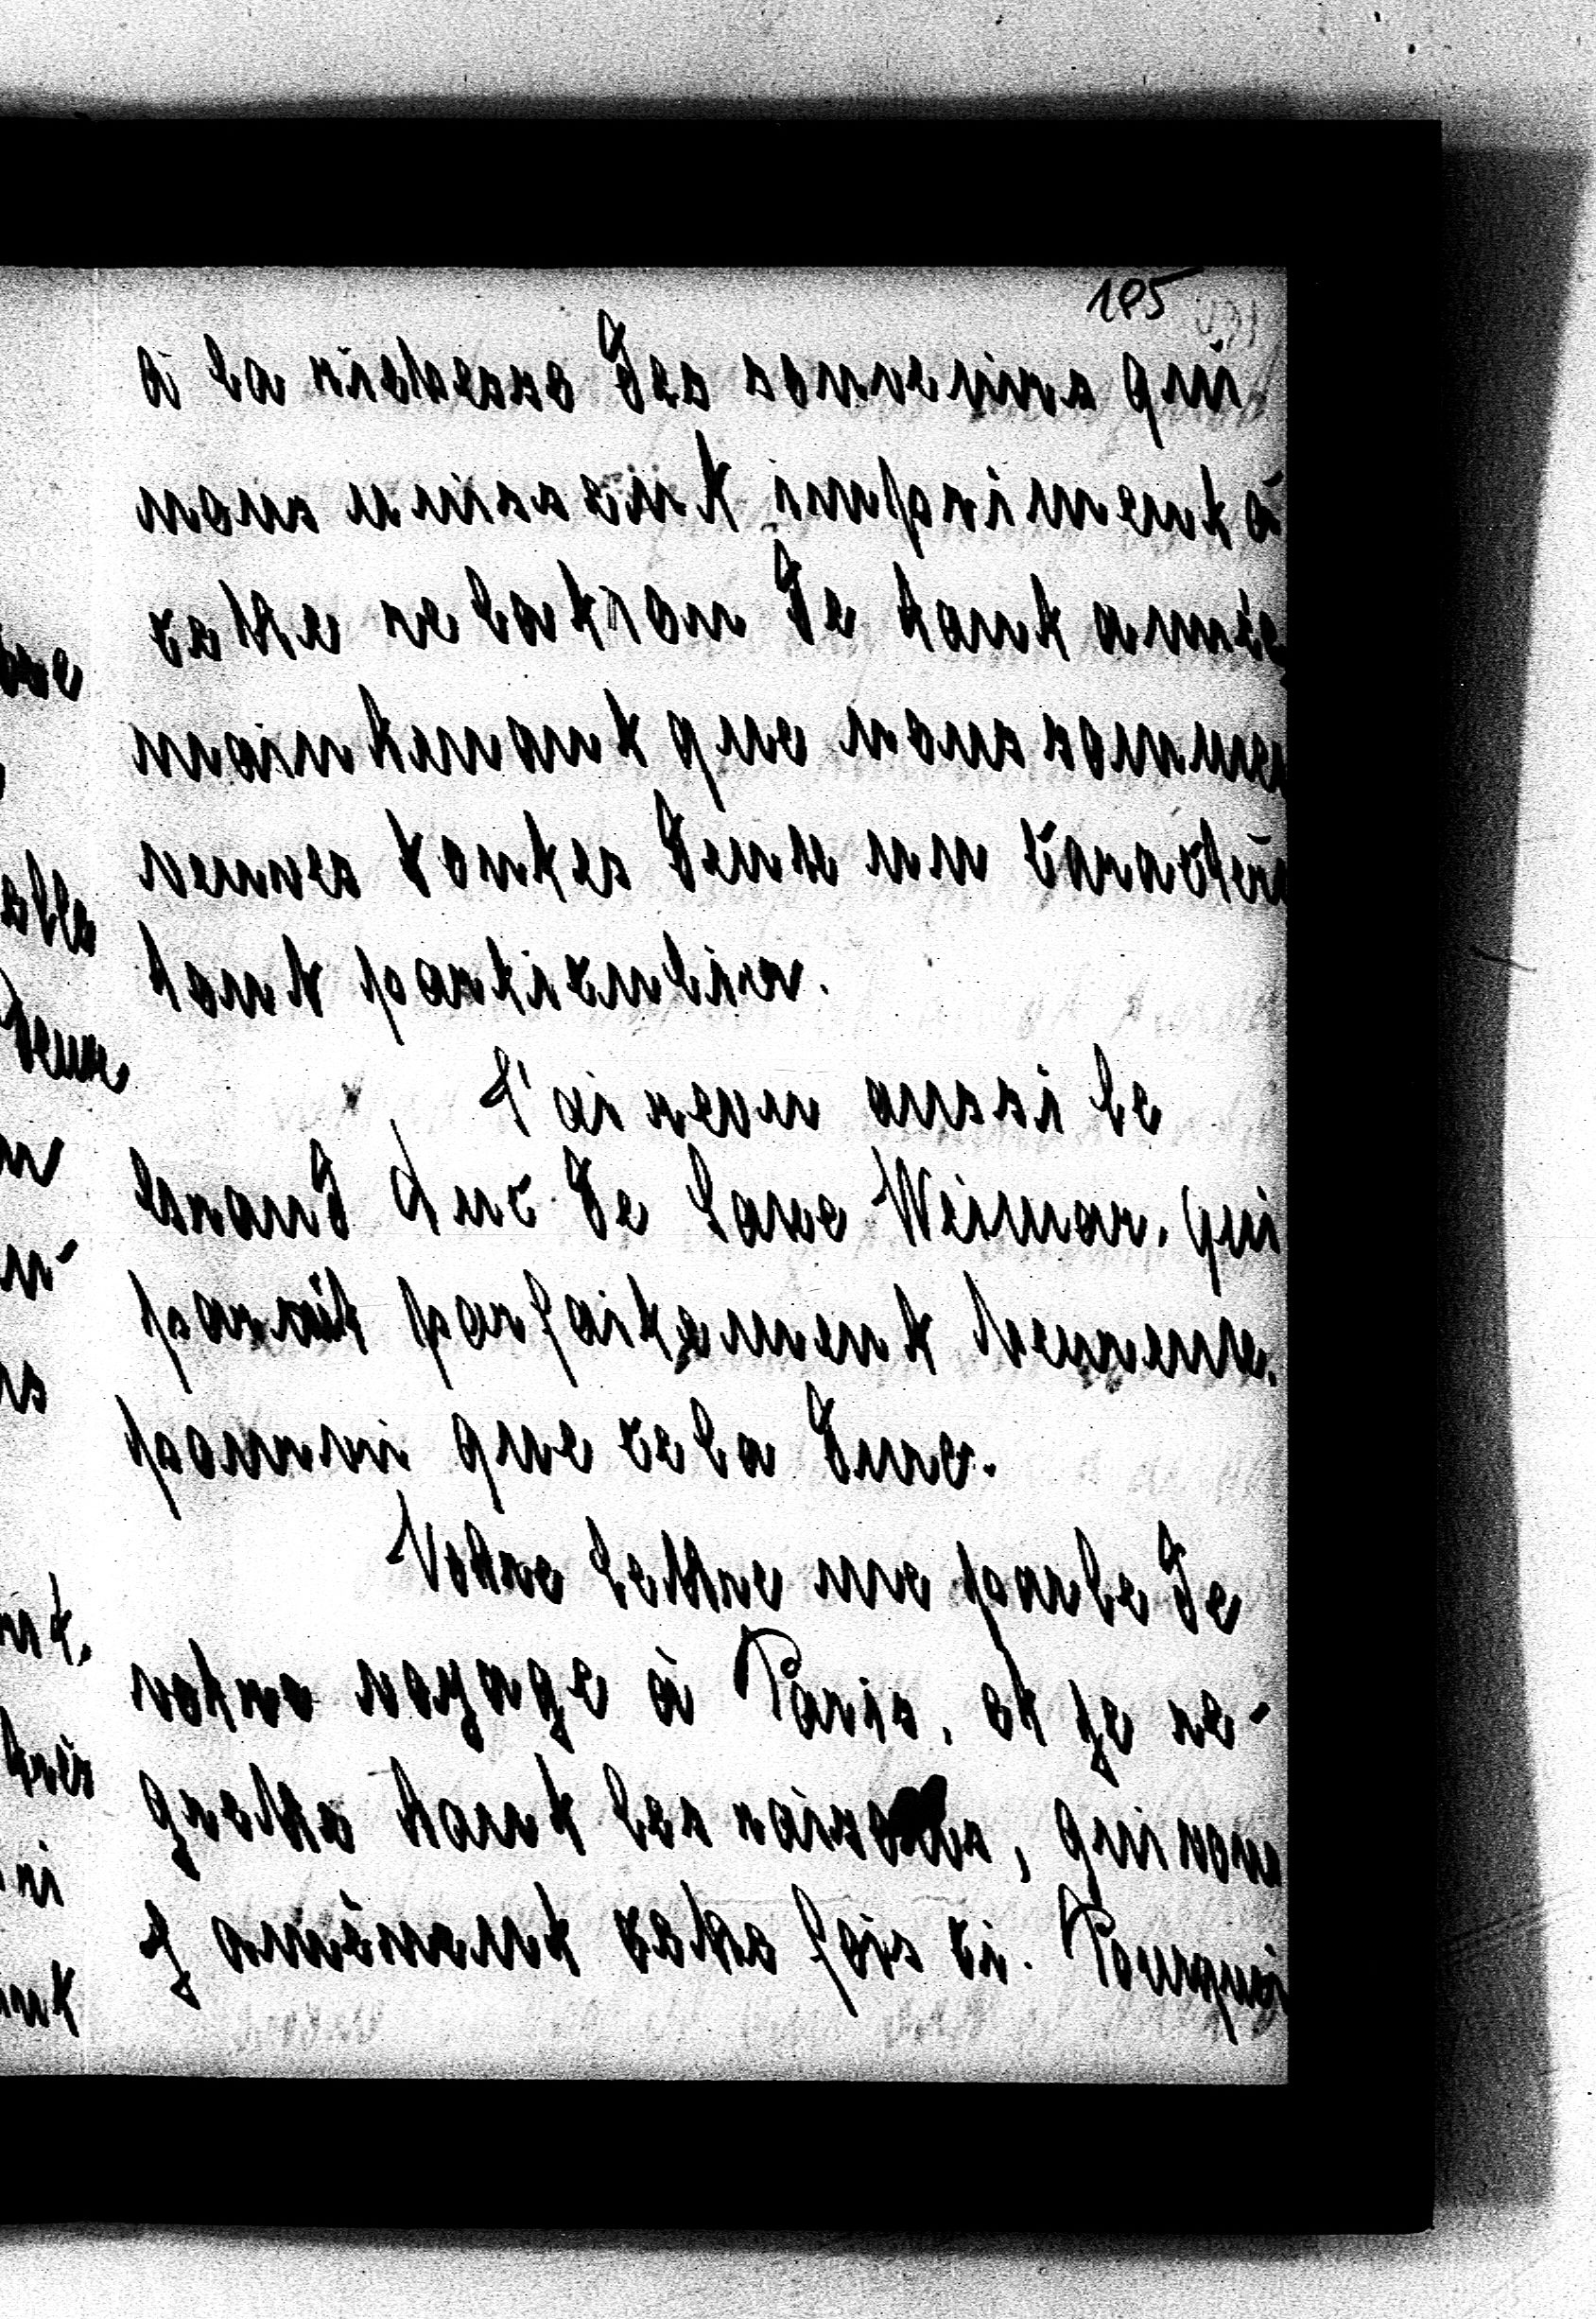 105
à la richesse des souvenirs qui
nous unissent impriment à
cette relation de tant année
maintenant que nous sommes
veuves toutes deux un caractère
tout particulier.
J'ai revu aussi le
Grand Duc de Saxe Weimar. qui
parait parfaitement heureux.
pourvu que cela dure.
Votre lettre me parle de
votre voyage à Paris, et je re-
grette tant les raisons, qui vous
y amènent cette fois ci. Pourquoi